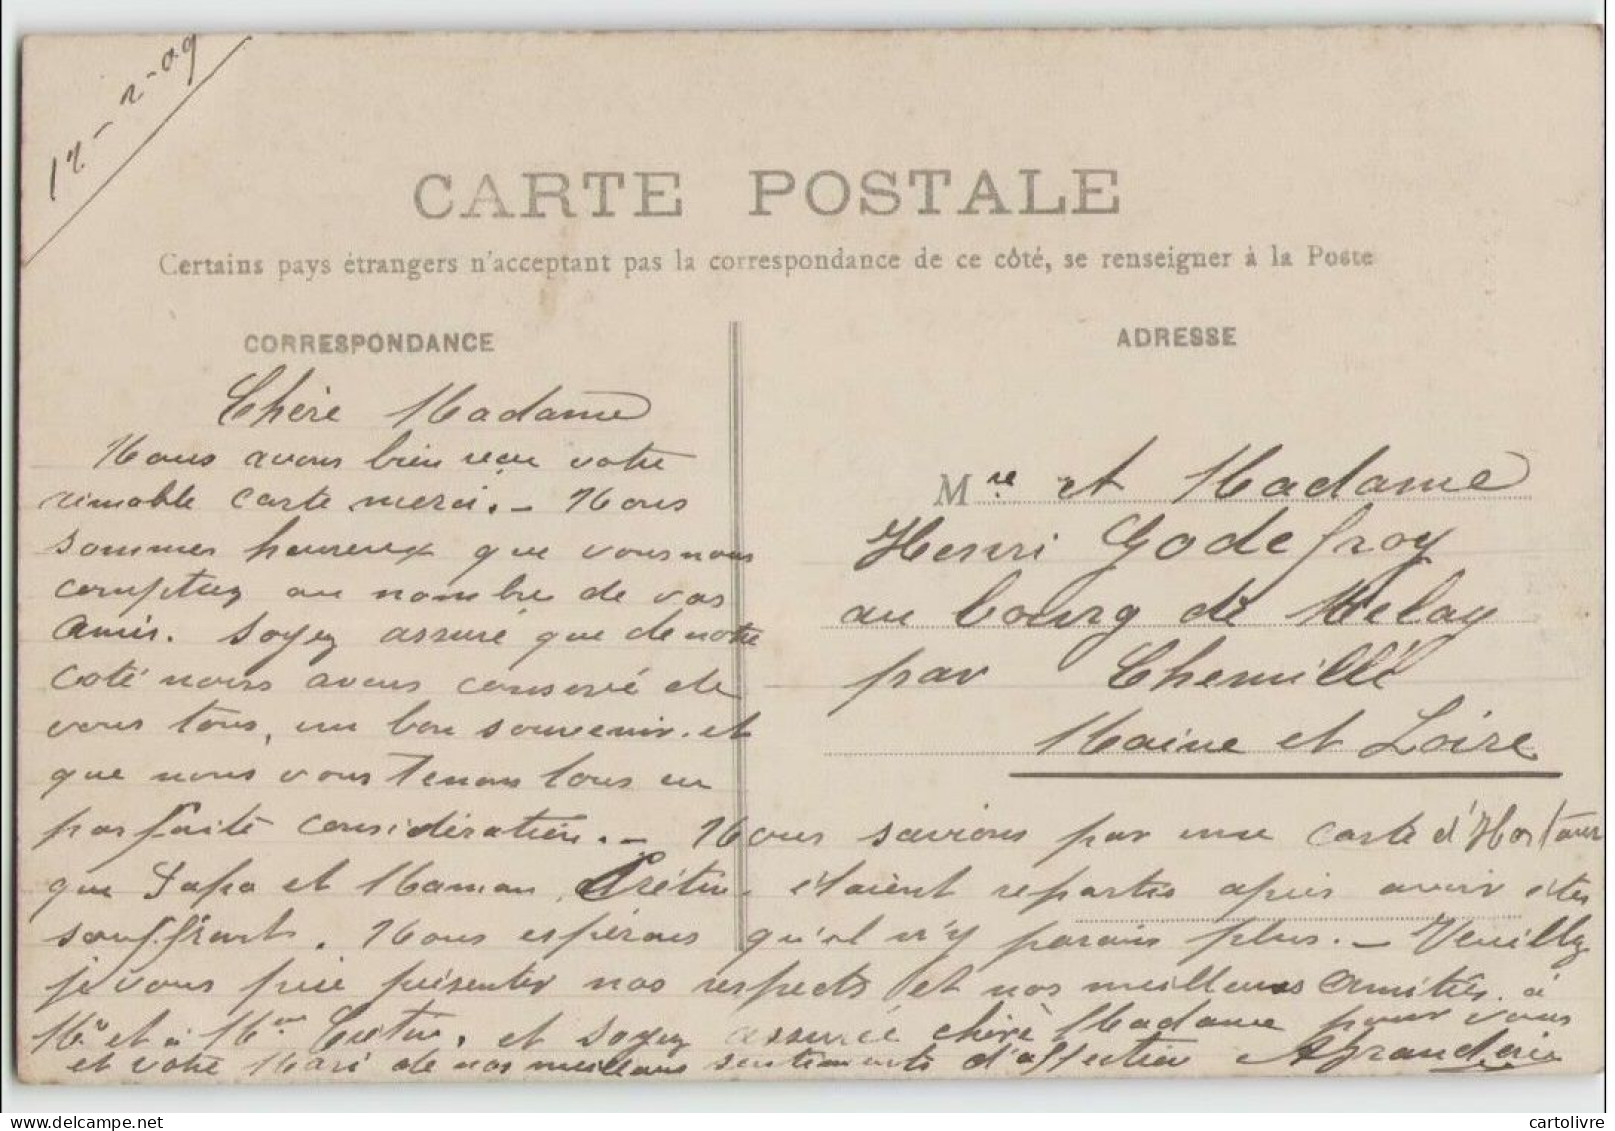 17-2-09
CARTE POSTALE
Certains pays étrangers n'acceptant pas la correspondance de ce côté, se renseigner à la Poste
CORRESPONDANCE
Chère Madame
Nous avons bien reçu votre
aimable carte merci. – Nous
sommes heureux que vous nous
comptiez au nombre de vos
amis. Soyez assuré que de notre
coté nous avons conservé de
vous tous, un bon souvenir. et
que nous vous tenons tous en
parfaite considération. – Nous savions par une carte d'
que Papa et Maman Crétin. étaient repartis après avoir êtes
souffrants. Nous espérons qu'il n'y parais plus. – Veuillez
je vous prie présenter nos respects et nos meilleures amitiés. à
Mr et à Mme Crétin. et soyez assurée chère Madame pour vous
et votre Mari de nos meilleurs sentiments d'affection
ADRESSE
Mre et Madame
Henri Godefroy
au bourg de Melay
par Chemillé
Maine et Loire
cartolivre